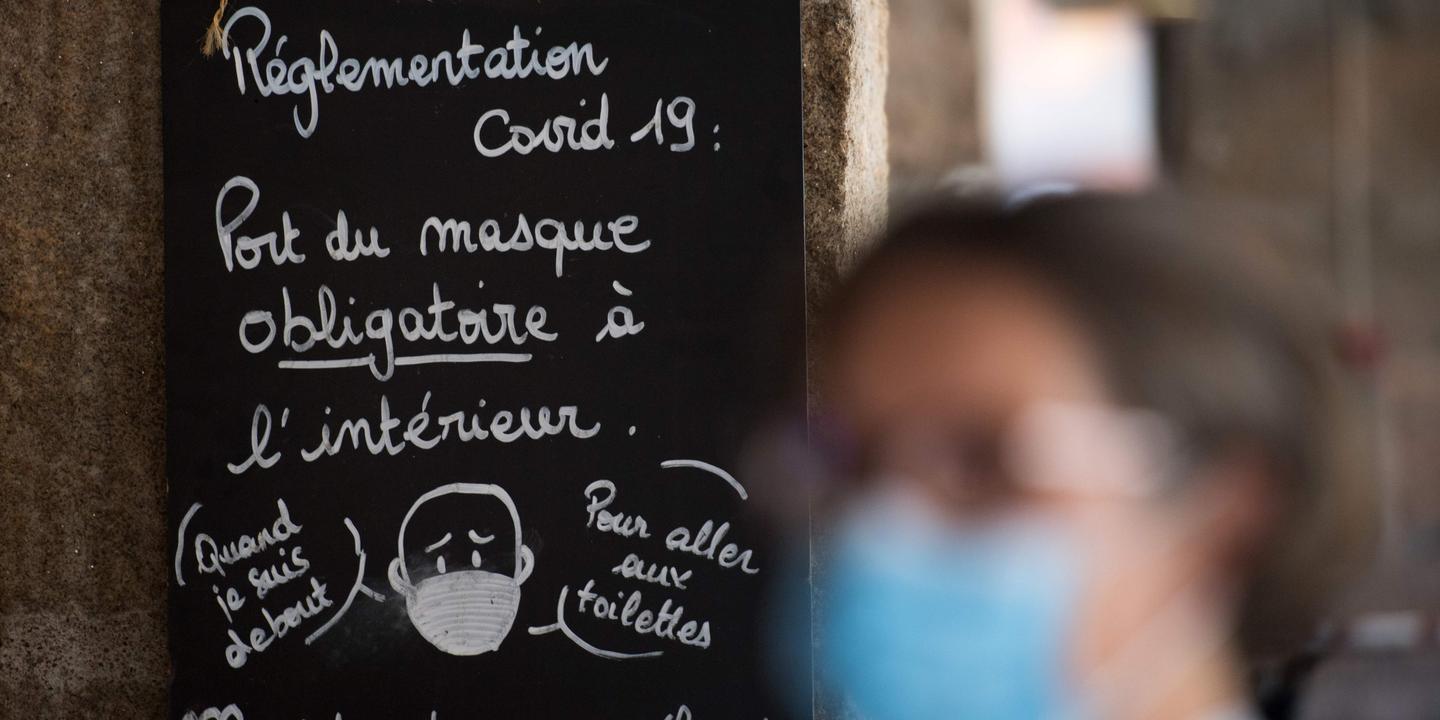 Réglementation
Covid 19 :
Port du masque
obligatoire à
l'intérieur .
Quand
je suis
debout
Pour aller
aux
toilettes